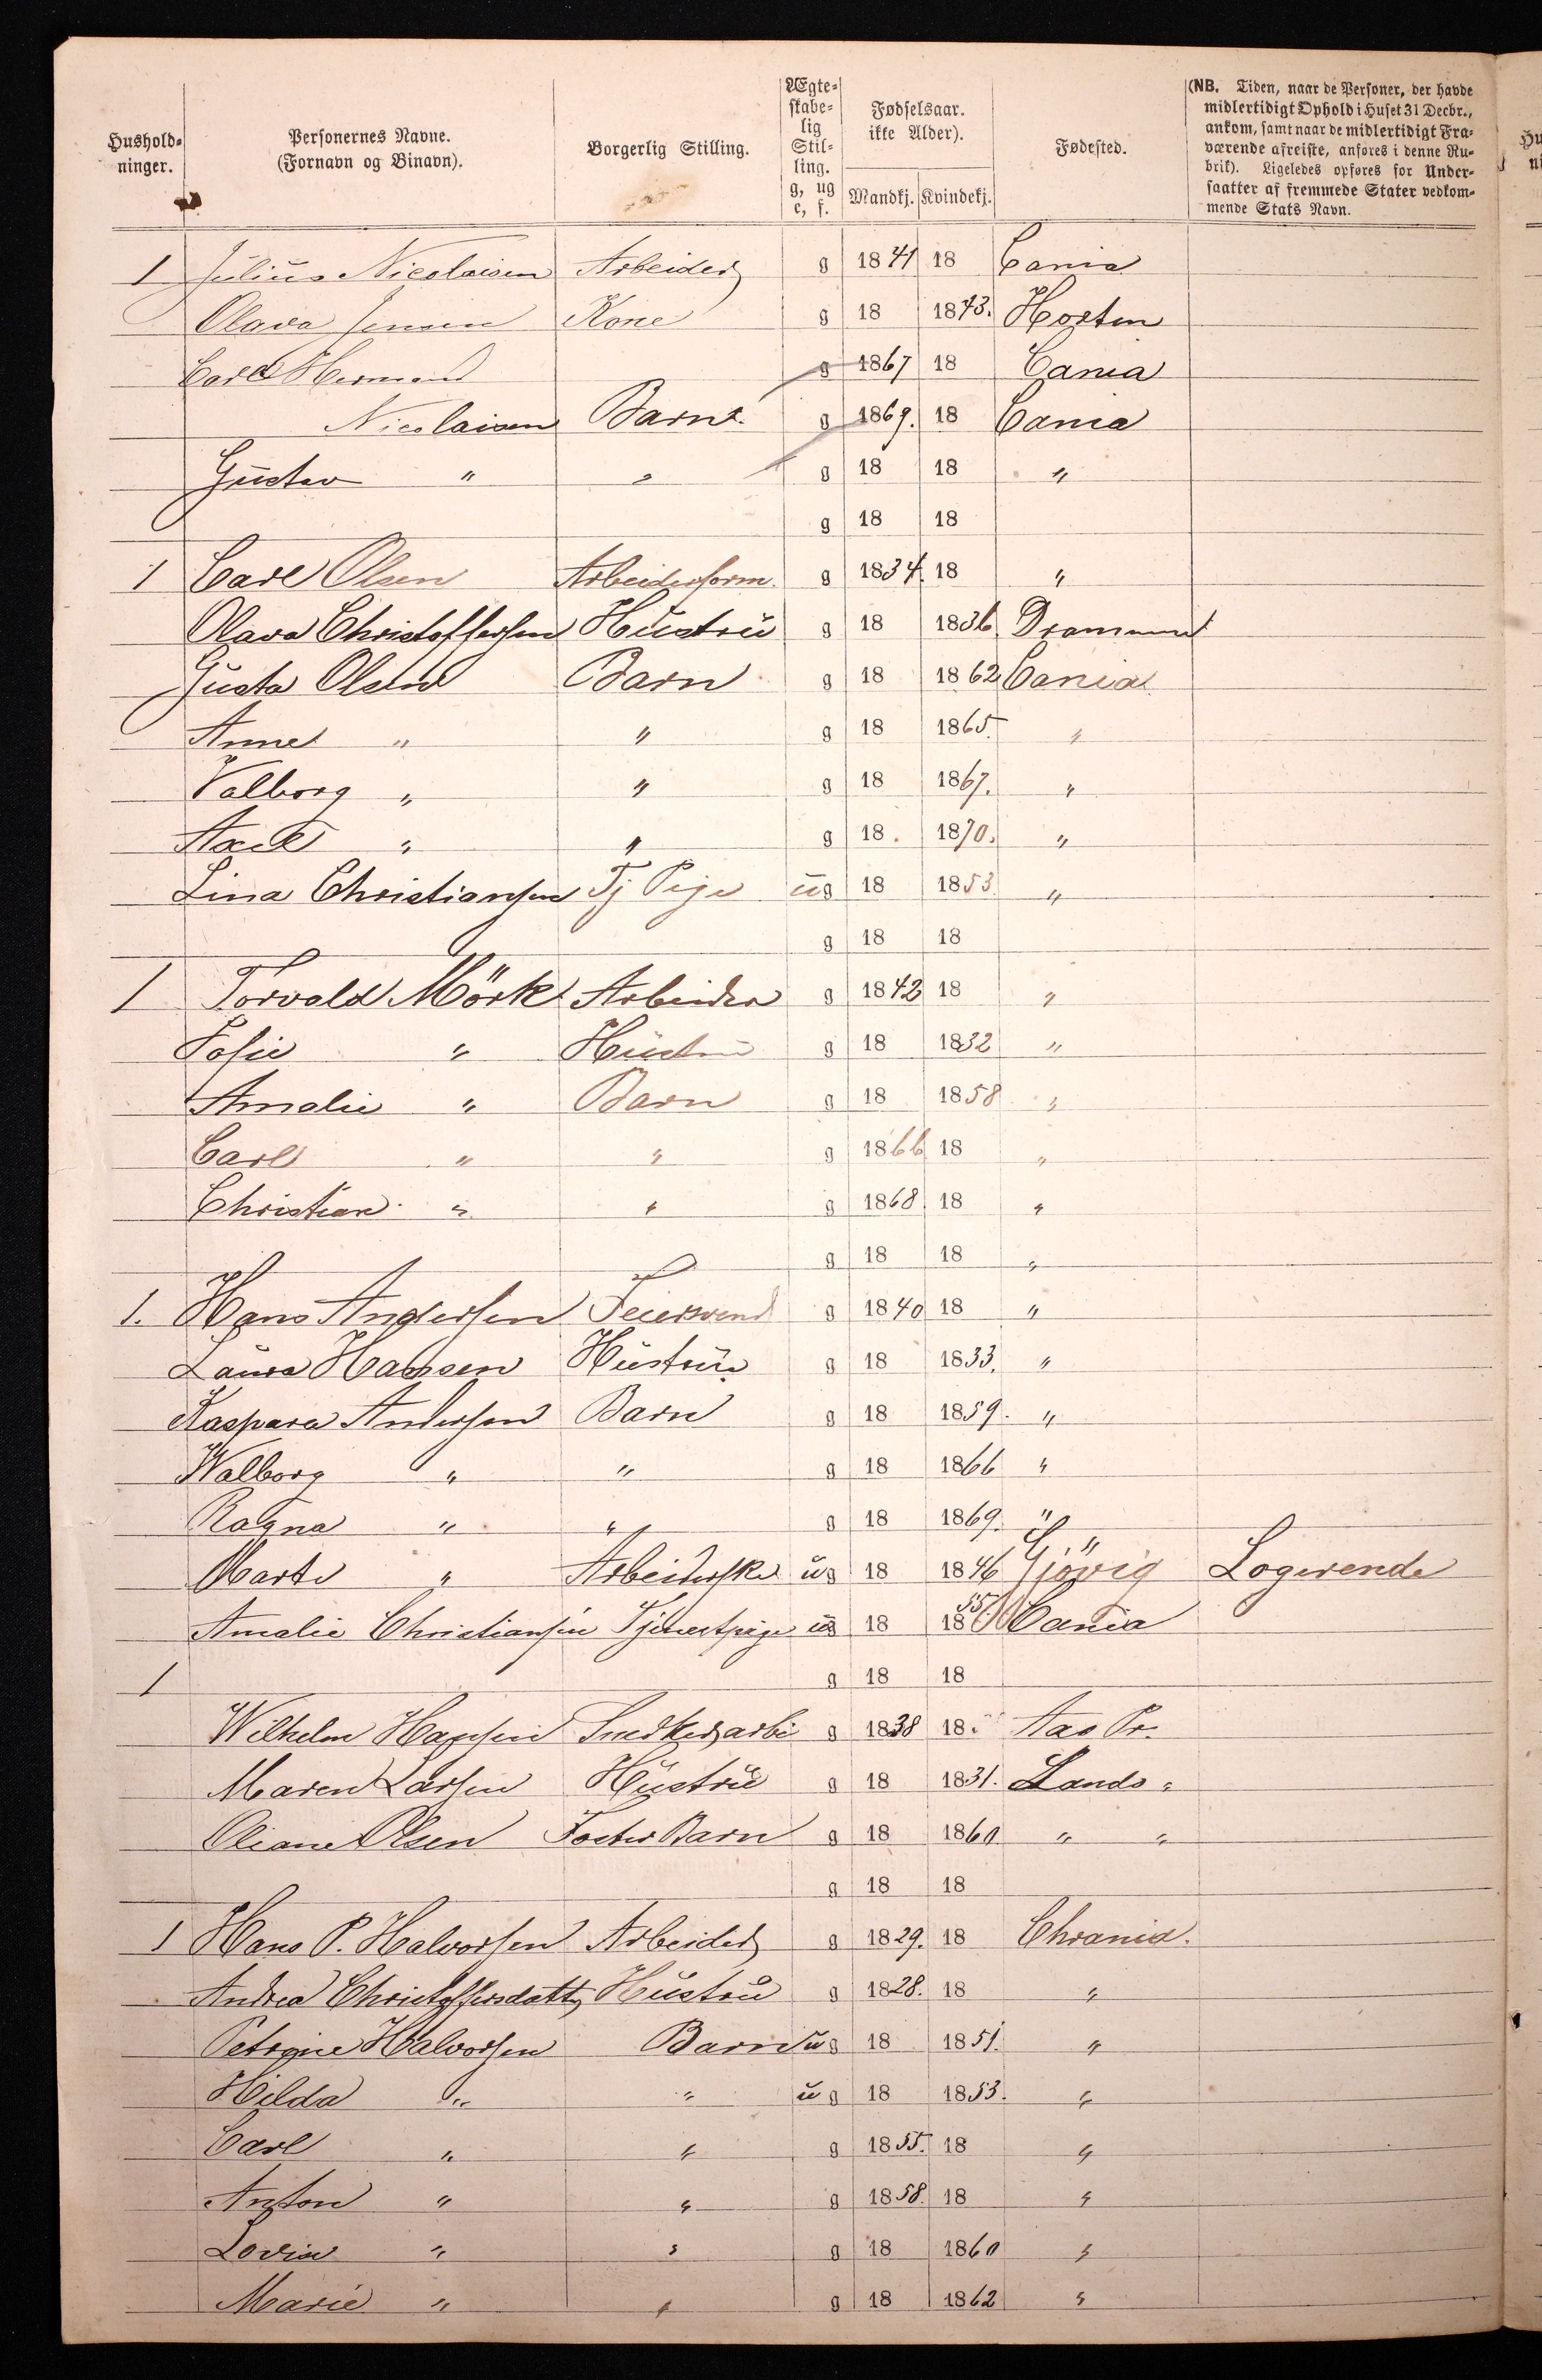 Hushold-
ninger.
Personernes Navne.
(Fornavn og Binavn).
Borgerlig Stilling.
Ægte-
skabe-
lig
Stil-
ling.
g, ug
e, f.
Fødselsaar.
ikke Alder).
Mandkj. Kvindekj.
Fødested.
(NB. Tiden, naar de Personer, der havde
midlertidigt Ophold i Huset 31 Decbr.,
ankom, samt naar de midlertidigt Fra-
værende afreiste, anføres i denne Ru-
brik). Ligeledes opføres for Under-
saatter af fremmede Stater vedkom-
mende Stats Navn.
1 Julius Nicolaisen Arbeider g 1841 18 Cania
Olava Jensen Kone g 18 1843. Horten
Carl Hermand g 1867 18 Cania
Nicolaisen Barn g 1869. 18 Cania
Gustav " " g 18 18 "
g 18 18
1 Carl Olsen Arbeidsform. g 1834. 18 "
Olava Christoffersen Hustru g 18 1836 Drammen
Gusta Olsen Barn g 18 1862 Cania
Anne " " g 18 1865. "
Valborg " " g 18 1867. "
Axel " " g 18. 1870. "
Lina Christiansen Tj Pige ug 18 1853 "
g 18 18
1 Torvald Mörk Arbeider g 1842 18 "
Sofie " Hustru g 18 1832 "
Amalie " Barn g 18 1858 "
Carl " " g 1866 18 "
Christian " " g 1868. 18 "
g 18 18 "
1. Hans Andersen Feiersvend g 1840 18 "
Laura Hansen Hustru g 18 1833. "
Kaspara Andersen Barn g 18 1859. "
Walborg " " g 18 1866 "
Ragna " " g 18 1869. "
Marte " Arbeiderske ug 18 1846 Gjövig Logerende
Amalie Christiansen Tjenestpige ug 18 1855 Cania
1 g 18 18
Wilhelm Hansen Snedkerarbe g 1838 18 Aas Pr.
Maren Larsen Hustru g 18 1831. Lands "
Oliane Olsen Foster Barn g 18 1860 " "
g 18 18
1 Hans P. Halvorsen Arbeider g 1829. 18 Chrania.
Andrea Christoffersdatt Hustru g 1828. 18 "
Petrine Halvorsen Barn ug 18 1851. "
Hilda " " ug 18 1853. "
Carl " " g 1855. 18 "
Anton " " g 1858. 18 "
Lovise " " g 18 1860 "
Marie " " g 18 1862 "